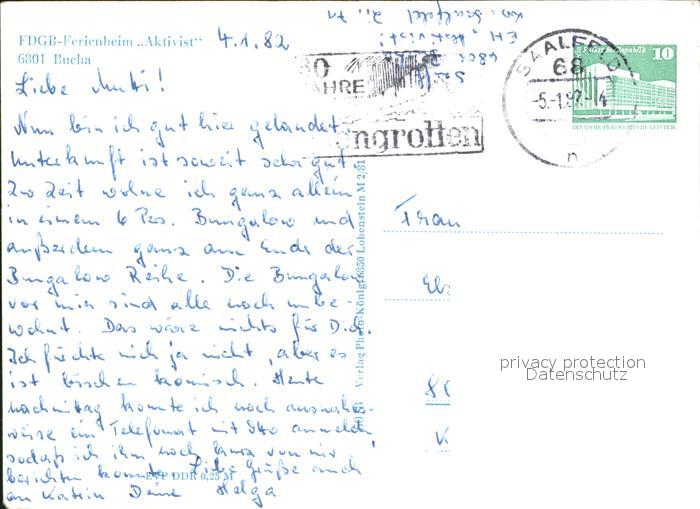 FDGB-Ferienheim „Aktivist"
6801 Bucha
4.1.82
Liebe Mutti!
Nun bin ich gut hier gelandet.
Unterkunft ist soweit sehr gut.
Zur Zeit wohne ich ganz allein
in einem 6 Pers. Bungalow und
außerdem ganz am Ende der
Bungalow Reihe. Die Bungalow
vor mir sind alle noch unbe-
wohnt. Das wäre nichts für Dich.
Ich fürchte mich ja nicht, aber es
ist bischen komisch. Heute
nachmittag konnte ich noch ausnahms-
weise ein Telefonat mit Otto anmelden,
sodaß ich ihm noch kurz von mir
berichten konnte. Liebe Grüße auch
an Katrin Deine Helga
EVP DDR 0,25 M
Verlag Photo-König 6850 Lobenstein M 2/81
JAHRE
engrotten
SAALFELD
68
-5.-1.82-14
n
Palast der Republik
10
DEUTSCHE DEMOKRATISCHE REPUBLIK
Frau
privacy protection
Datenschutz